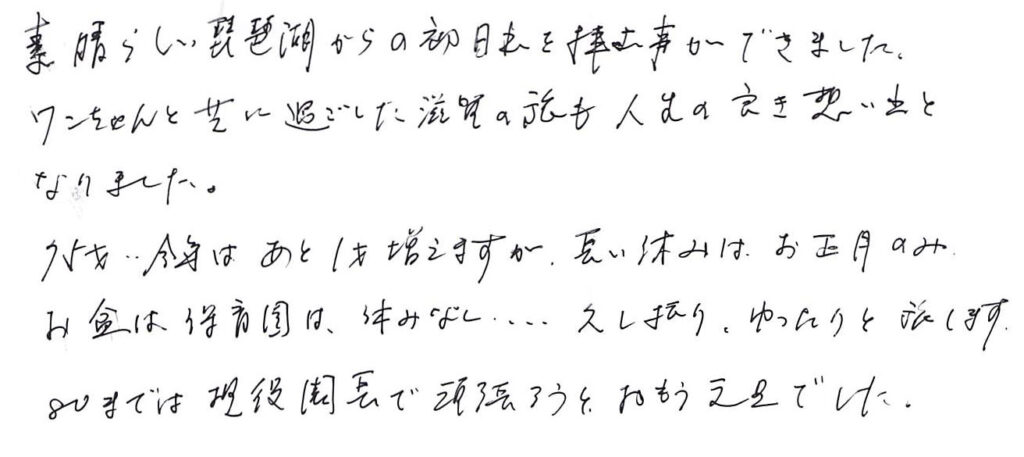 素晴らしい琵琶湖からの初日の出を拝む事ができました。
ワンちゃんと共に過ごした滋賀の旅も人生の良き想い出と
なりました。
75才‥今年はあと1才増えますが、長い休みは、お正月のみ、
お盆は保育園は、休みなし‥‥久し振り、ゆったりと旅します。
80までは現役園長で頑張ろうと、おもう元旦でした。